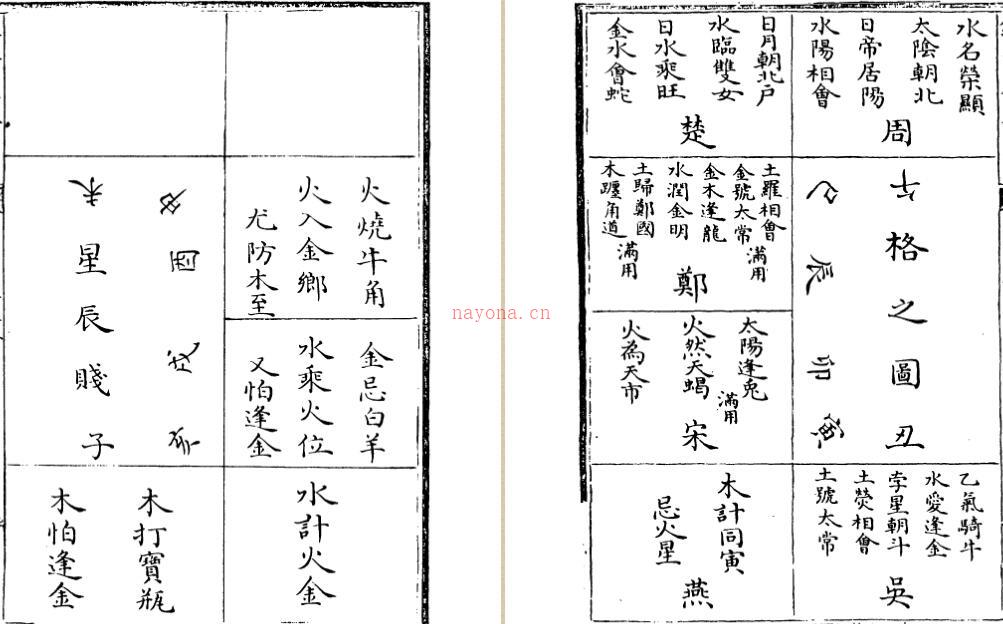 水名榮顯
太陰朝北
日帝居陽
水陽相會
周
日月朝北戶
水臨雙女
日水乘旺
金水會蛇
楚
午格之圖丑
巳辰卯寅
土羅相會
滿用
金號太常
金木逢龍
水潤金明
土歸鄭國
滿用
木躔角道
鄭
太陽逢兎
滿用
火然天蝎
火為天市
宋
乙氣騎牛
水愛逢金
孛星朝斗
土熒相會
土號太常
吳
木計同寅
忌火星
燕
火燒牛角
火入金鄉
尤防木至
金忌白羊
水乘火位
又怕逢金
水計火金
申酉戌亥
未星辰賤子
木打寶瓶
木怕逢金
nayona.cn